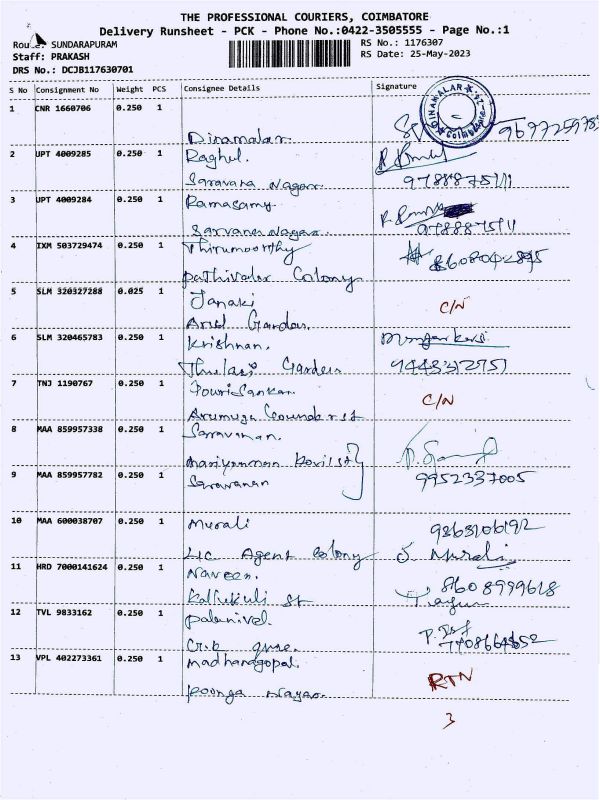 THE PROFESSIONAL COURIERS, COIMBATORE
Delivery Runsheet - PCK - Phone No.:0422-3505555 - Page No.:1
Route: SUNDARAPURAM
RS No.: 1176307
Staff: PRAKASH
RS Date: 25-May-2023
DRS No.: DCJB117630701
S No Consignment No Weight PCS Consignee Details Signature
1 CNR 1660706 0.250 1
DINAMALAR
Coimbatore
Dinamalar
2 UPT 4009285 0.250 1 Raghul.
Saravana Nagar
9788875111
3 UPT 4009284 0.250 1 Ramasamy
Sarvana Nagar.
9788875111
4 IXM 503729474 0.250 1 Thirumoorthy
8608042895
pathivalar Colony
5 SLM 320327288 0.025 1 Janaki
C/N
Ariel Garden.
6 SLM 320465783 0.250 1 Krishnan.
Thulasi Garden
9443312751
7 TNJ 1190767 0.250 1 Gourisankar
C/N
Arumuga Gounder st
8 MAA 859957338 0.250 1 Saravanan.
mariyamman Kovil st
9 MAA 859957782 0.250 1 Saravanan
9952337005
10 MAA 600038707 0.250 1 Murali
9363106192
LIC Agent Colony
S. Murali
11 HRD 7000141624 0.250 1 Naveen.
8608999618
Kallukuli st
12 TVL 9833162 0.250 1 palanivel.
7708664652
13 VPL 402273361 0.250 1 madhanagopal
RTN
poonga Nagar.
3